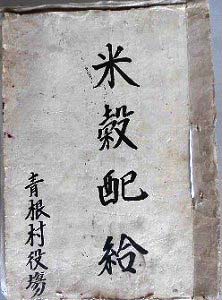 米穀配給
青根村役場